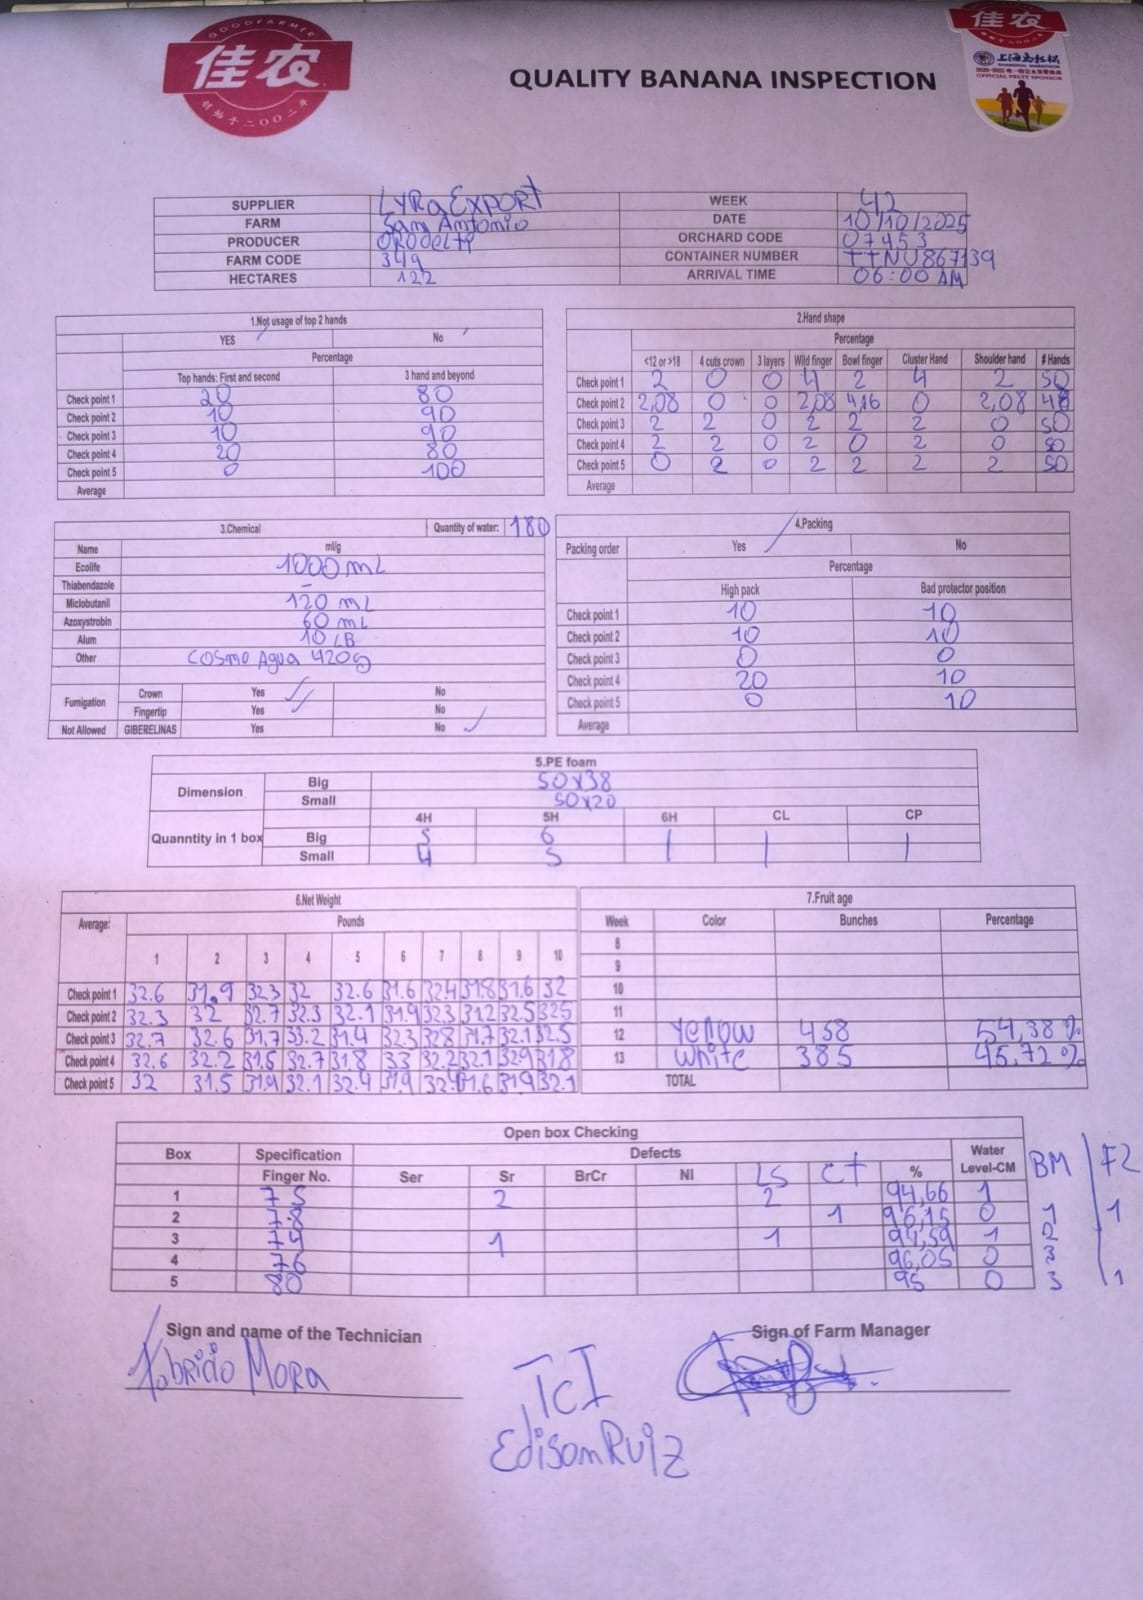 GOODFARMER
佳农
创始于二〇〇二年
QUALITY BANANA INSPECTION
佳农
上海马拉松
SHANGHAI MARATHON
OFFICIAL FRUIT SPONSOR
SUPPLIER LYRa EXPORT WEEK 42
FARM San Antonio DATE 10/10/2025
PRODUCER ORODELTY ORCHARD CODE 07453
FARM CODE 349 CONTAINER NUMBER TTNU867139
HECTARES 122 ARRIVAL TIME 06:00 AM
1.Not usage of top 2 hands
YES No
Percentage
Top hands: First and second 3 hand and beyond
Check point 1 20 80
Check point 2 10 90
Check point 3 10 90
Check point 4 20 80
Check point 5 0 100
Average
2.Hand shape
Percentage
<12 or >18 4 cuts crown 3 layers Wild finger Bowl finger Cluster Hand Shoulder hand # Hands
Check point 1 2 0 0 4 2 4 2 50
Check point 2 2,08 0 0 2,08 4,16 0 2,08 48
Check point 3 2 2 0 2 2 2 0 50
Check point 4 2 2 0 2 0 2 0 50
Check point 5 0 2 0 2 2 2 2 50
Average
3.Chemical Quantity of water: 180
Name ml/g
Ecolife 1000 mL
Thiabendazole -
Miclobutanil 120 mL
Azoxystrobin 60 mL
Alum 10 LB
Other COSMO Agua 420g
Fumigation Crown Yes No
Fingertip Yes No
Not Allowed GIBERELINAS Yes No
4.Packing
Packing order Yes No
Percentage
High pack Bad protector position
Check point 1 10 10
Check point 2 10 10
Check point 3 0 0
Check point 4 20 10
Check point 5 0 10
Average
5.PE foam
Dimension Big 50x38
Small 50x20
4H 5H 6H CL CP
Quanntity in 1 box Big 5 6
Small 4 5
6.Net Weight
Average: Pounds
1 2 3 4 5 6 7 8 9 10
Check point 1 32.6 31.9 32.3 32 32.6 31.6 32.4 31.8 31.6 32
Check point 2 32.3 32 32.7 32.3 32.1 31.9 32.3 31.2 32.5 32.5
Check point 3 32.7 32.6 31.7 33.2 31.4 32.3 32.8 31.7 32.1 32.5
Check point 4 32.6 32.2 31.5 32.7 31.8 33 32.2 32.1 32.9 31.8
Check point 5 32 31.5 31.9 32.1 32.4 31.9 31.6 31.9 32.1
7.Fruit age
Week Color Bunches Percentage
8
9
10
11
12 Yellow 458 54,38 %
13 White 385 45,72 %
TOTAL
Open box Checking
Box Specification Defects Water
Finger No. Ser Sr BrCr NI LS CT % Level-CM BM FZ
1 75 2 2 94,66 1
2 78 1 96,15 0 1 1
3 74 1 1 94,59 1 2
4 76 96,05 0 3
5 80 95 0 3 1
Sign and name of the Technician Sign of Farm Manager
Fabricio Mora
TCI
Edison Ruiz